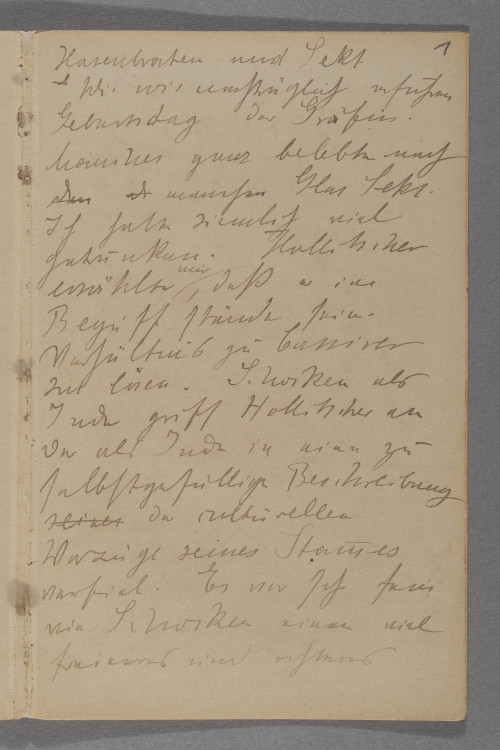 1
Hasenbraten und Sekt
Wie wir nachträglich erfuhren
Geburtstag der Gräfin.
ganz belebte nach
den manchen Glas Sekt.
Ich hatte ziemlich viel
getrunken. Hollitscher
erzählte mir, daß er im
Begriff stünde sein
Verhältnis zu Cassirer
zu lösen. Schocken als
Jude griff Hollitscher an
der als Jude in eine zu
selbstgefällige Beschreibung
seines der culturellen
Vorzüge seines Stammes
verfiel. Es war sehr fein
wie Schocken einen viel
feineres und